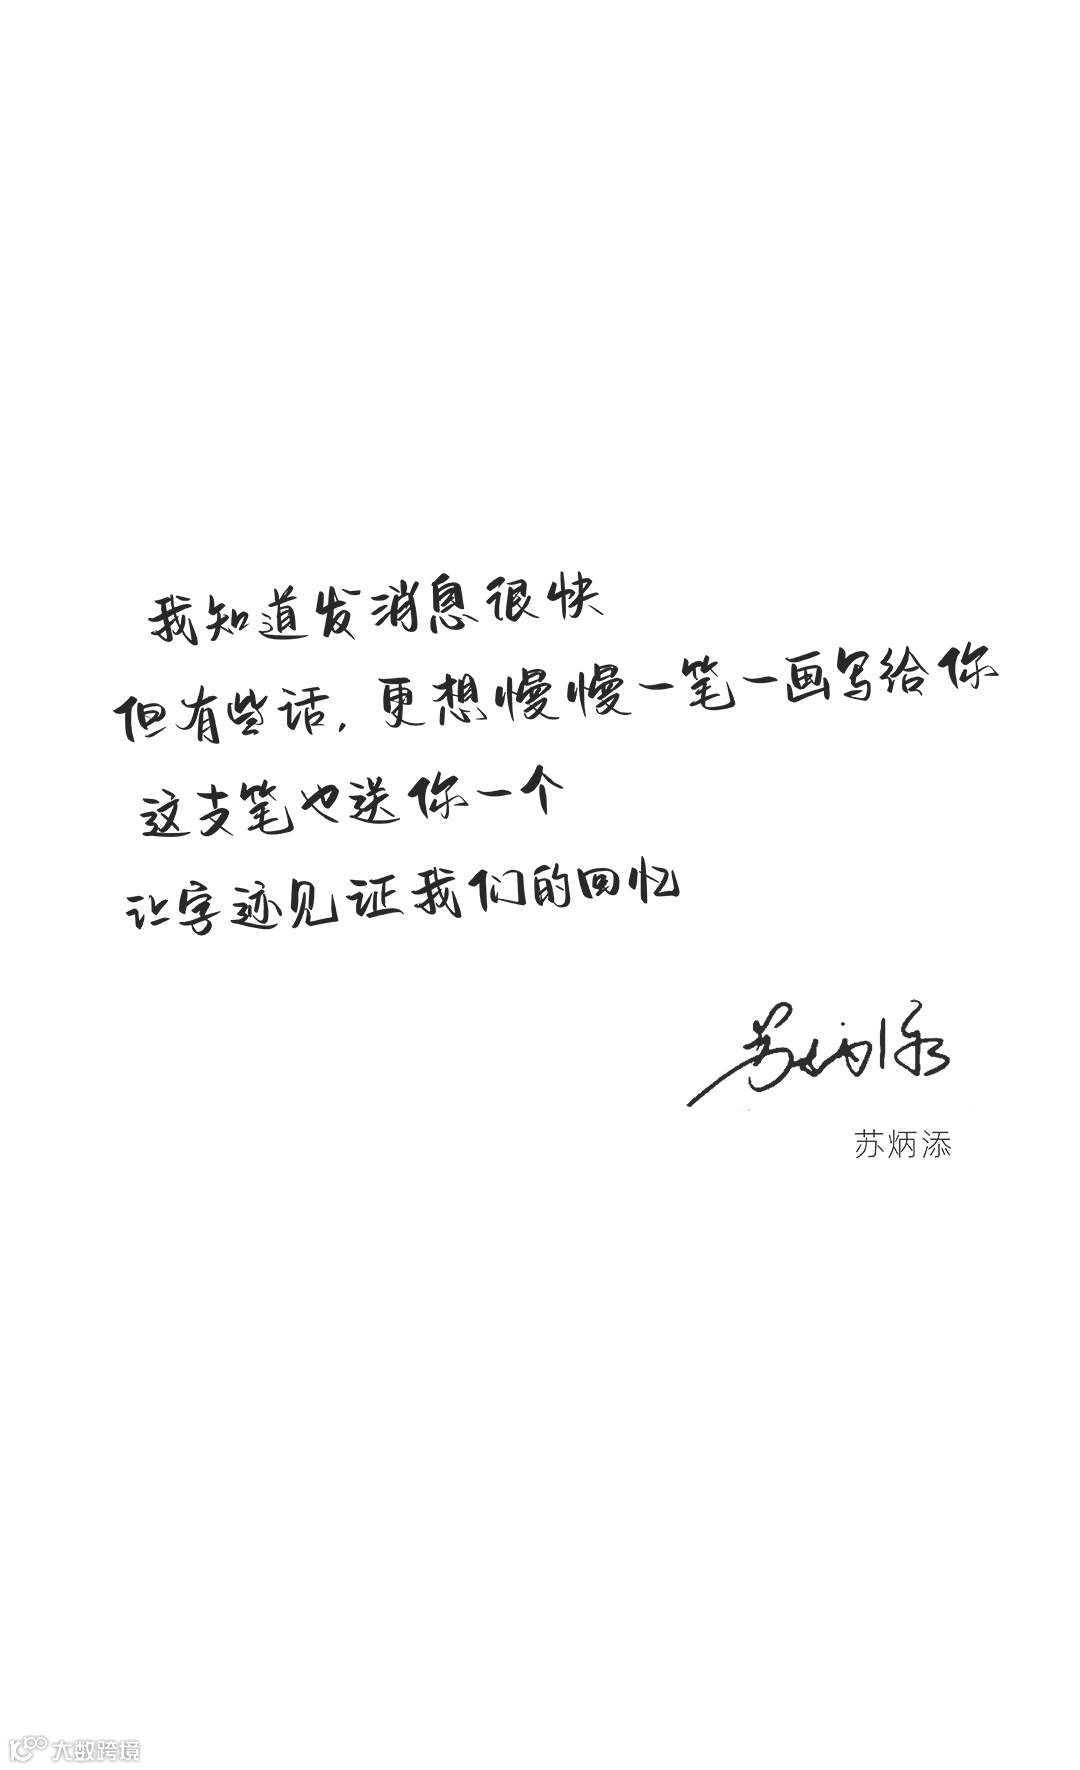 我知道发消息很快
但有些话，更想慢慢一笔一画写给你
这支笔也送你一个
让字迹见证我们的回忆
苏炳添
苏炳添
大数跨境